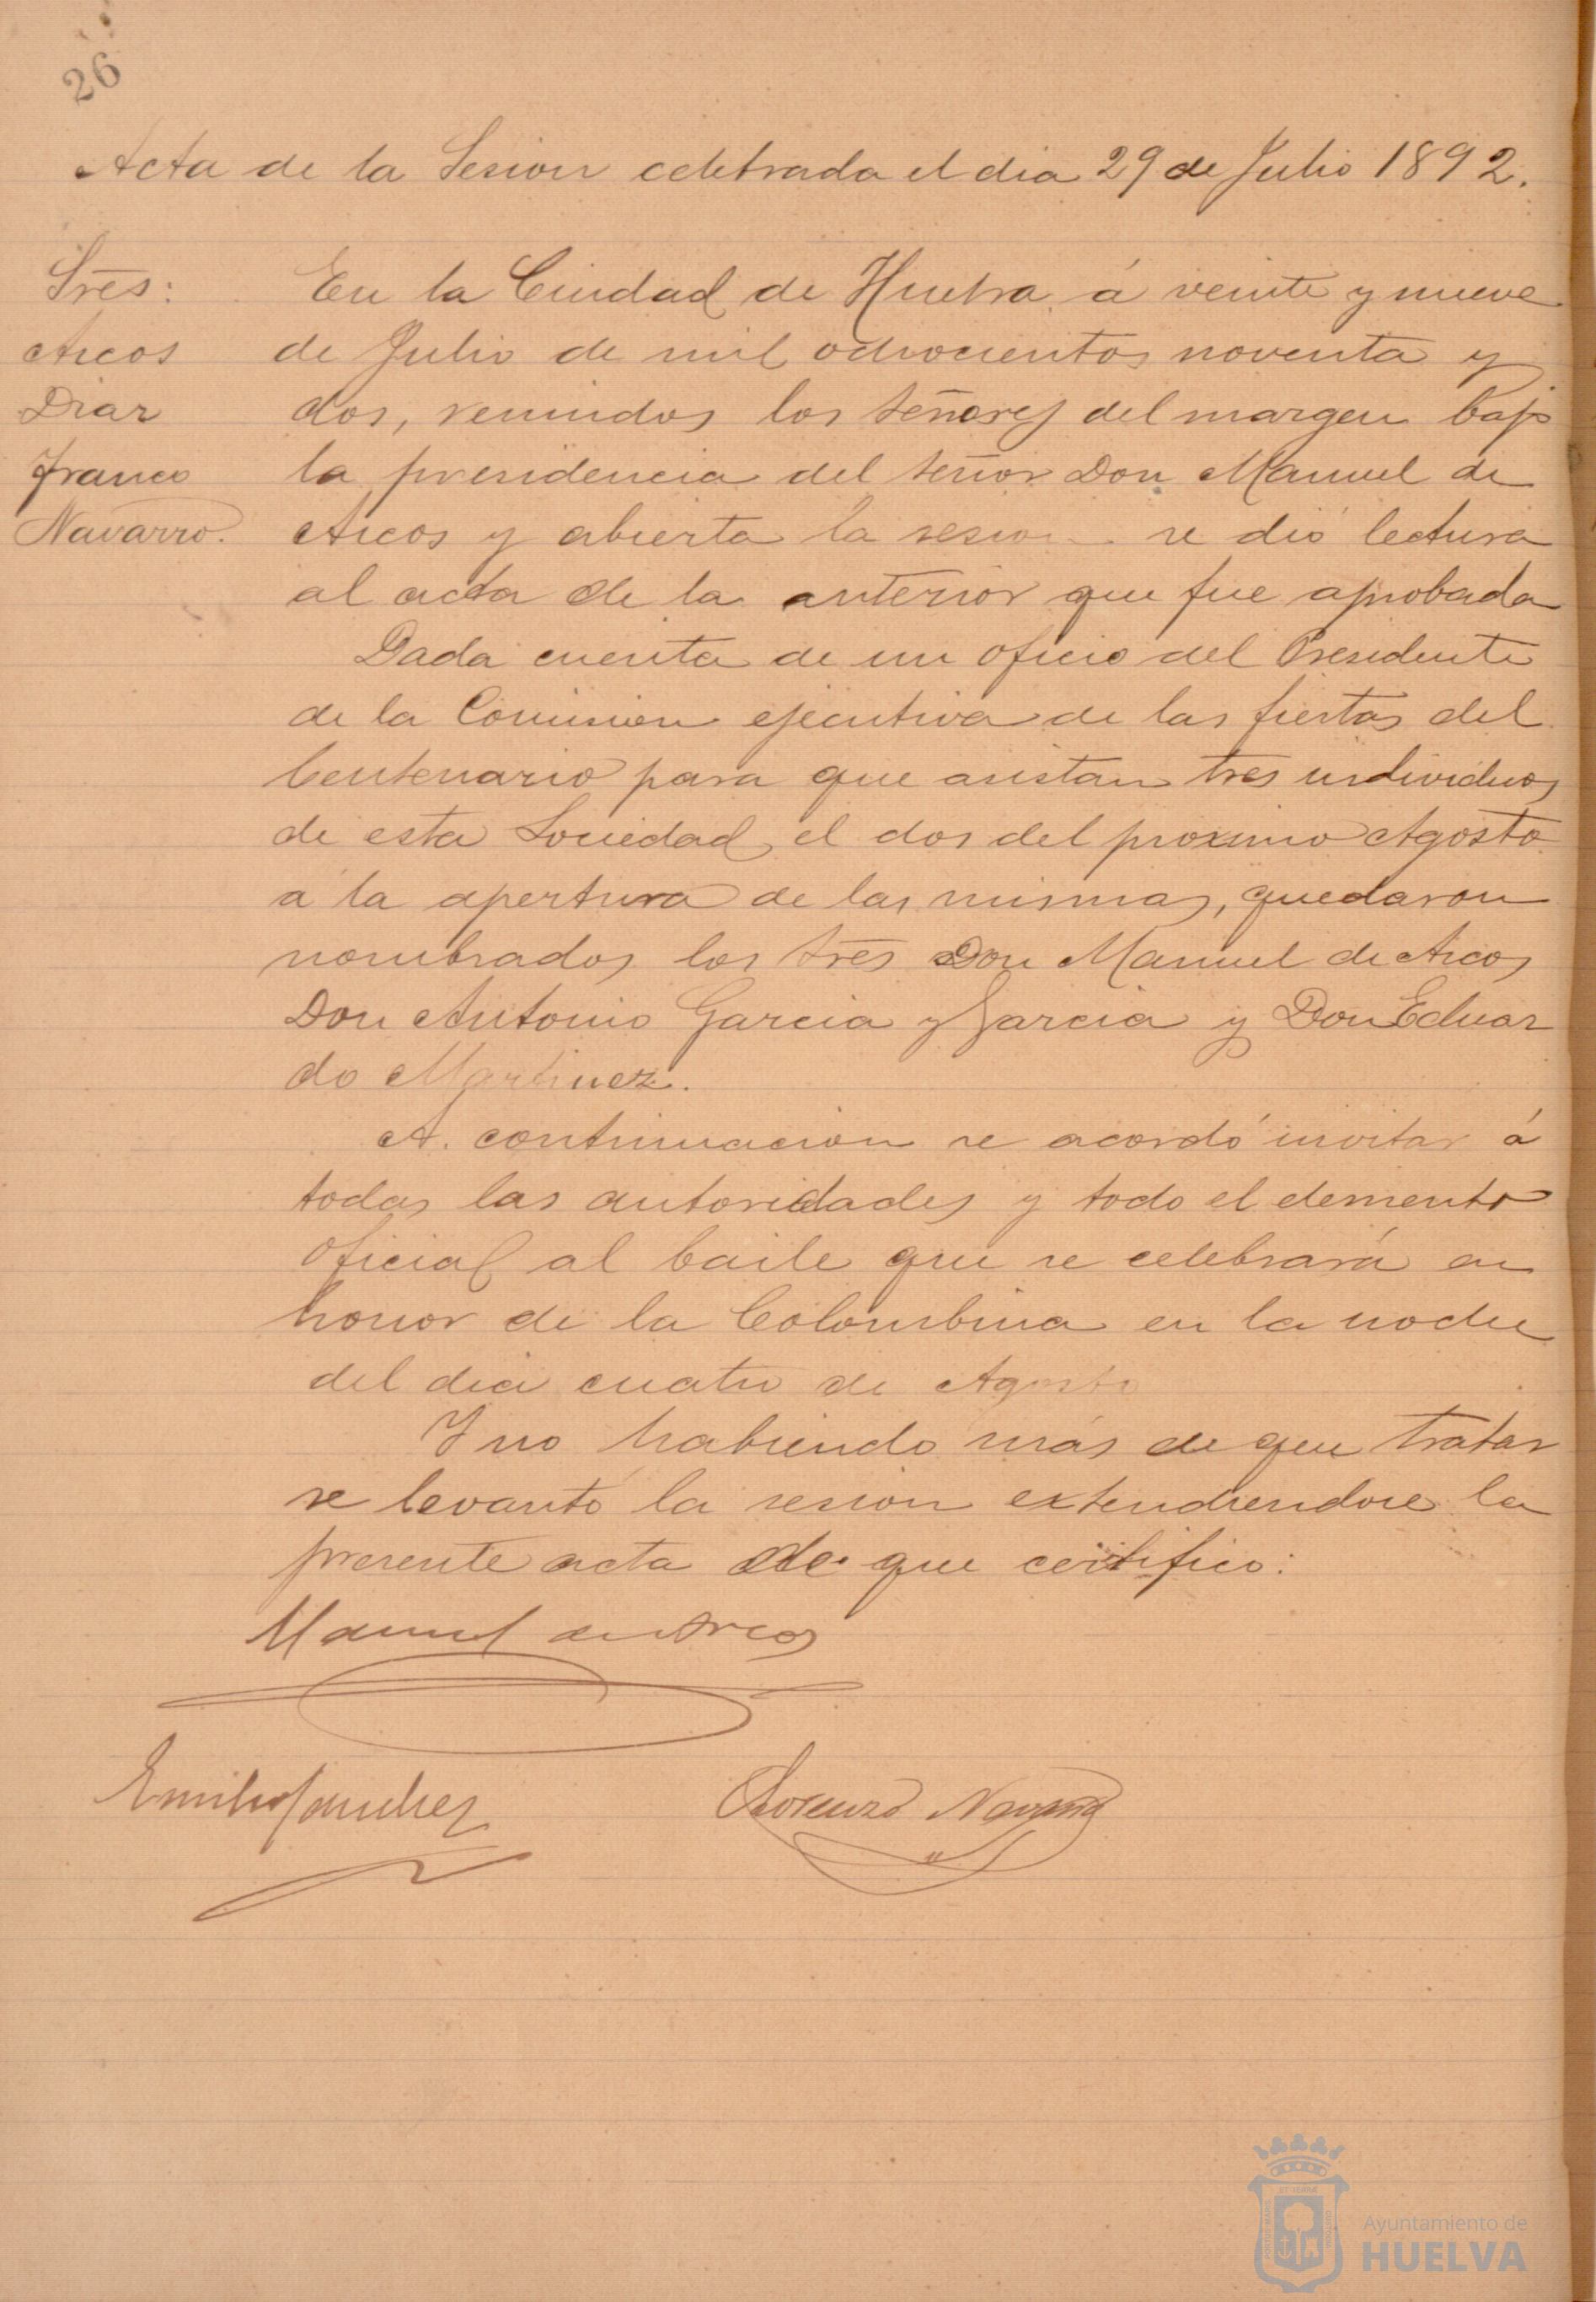 26
Acta de la Sesion celebrada el dia 29 de Julio 1892.
Sres:
Arcos
Diaz
Franco
Navarro.
En la Ciudad de Huelva á veinte y nueve
de Julio de mil ochocientos noventa y
dos, reunidos los señores del margen bajo
la presidencia del señor Don Manuel de
Arcos y abierta la sesion se dió lectura
al acta de la anterior que fue aprobada
Dada cuenta de un oficio del Presidente
de la Comision ejecutiva de las fiestas del
Centenario para que asistan tres individuos
de esta Sociedad el dos del proximo Agosto
a la apertura de las mismas, quedaron
nombrados los Sres Don Manuel de Arcos
Don Antonio Garcia y Garcia y Don Eduar
do Martinez.
A continuacion se acordó invitar á
todas las autoridades y todo el elemento
oficial al baile que se celebrará en
honor de la Colombina en la noche
del dia cuatro de Agosto
Y no habiendo más de que tratar
se levantó la sesion extendiendose la
presente acta de que certifico:
Manuel de Arcos
Emilio Sanchez
Lorenzo Navarro
Ayuntamiento de
HUELVA